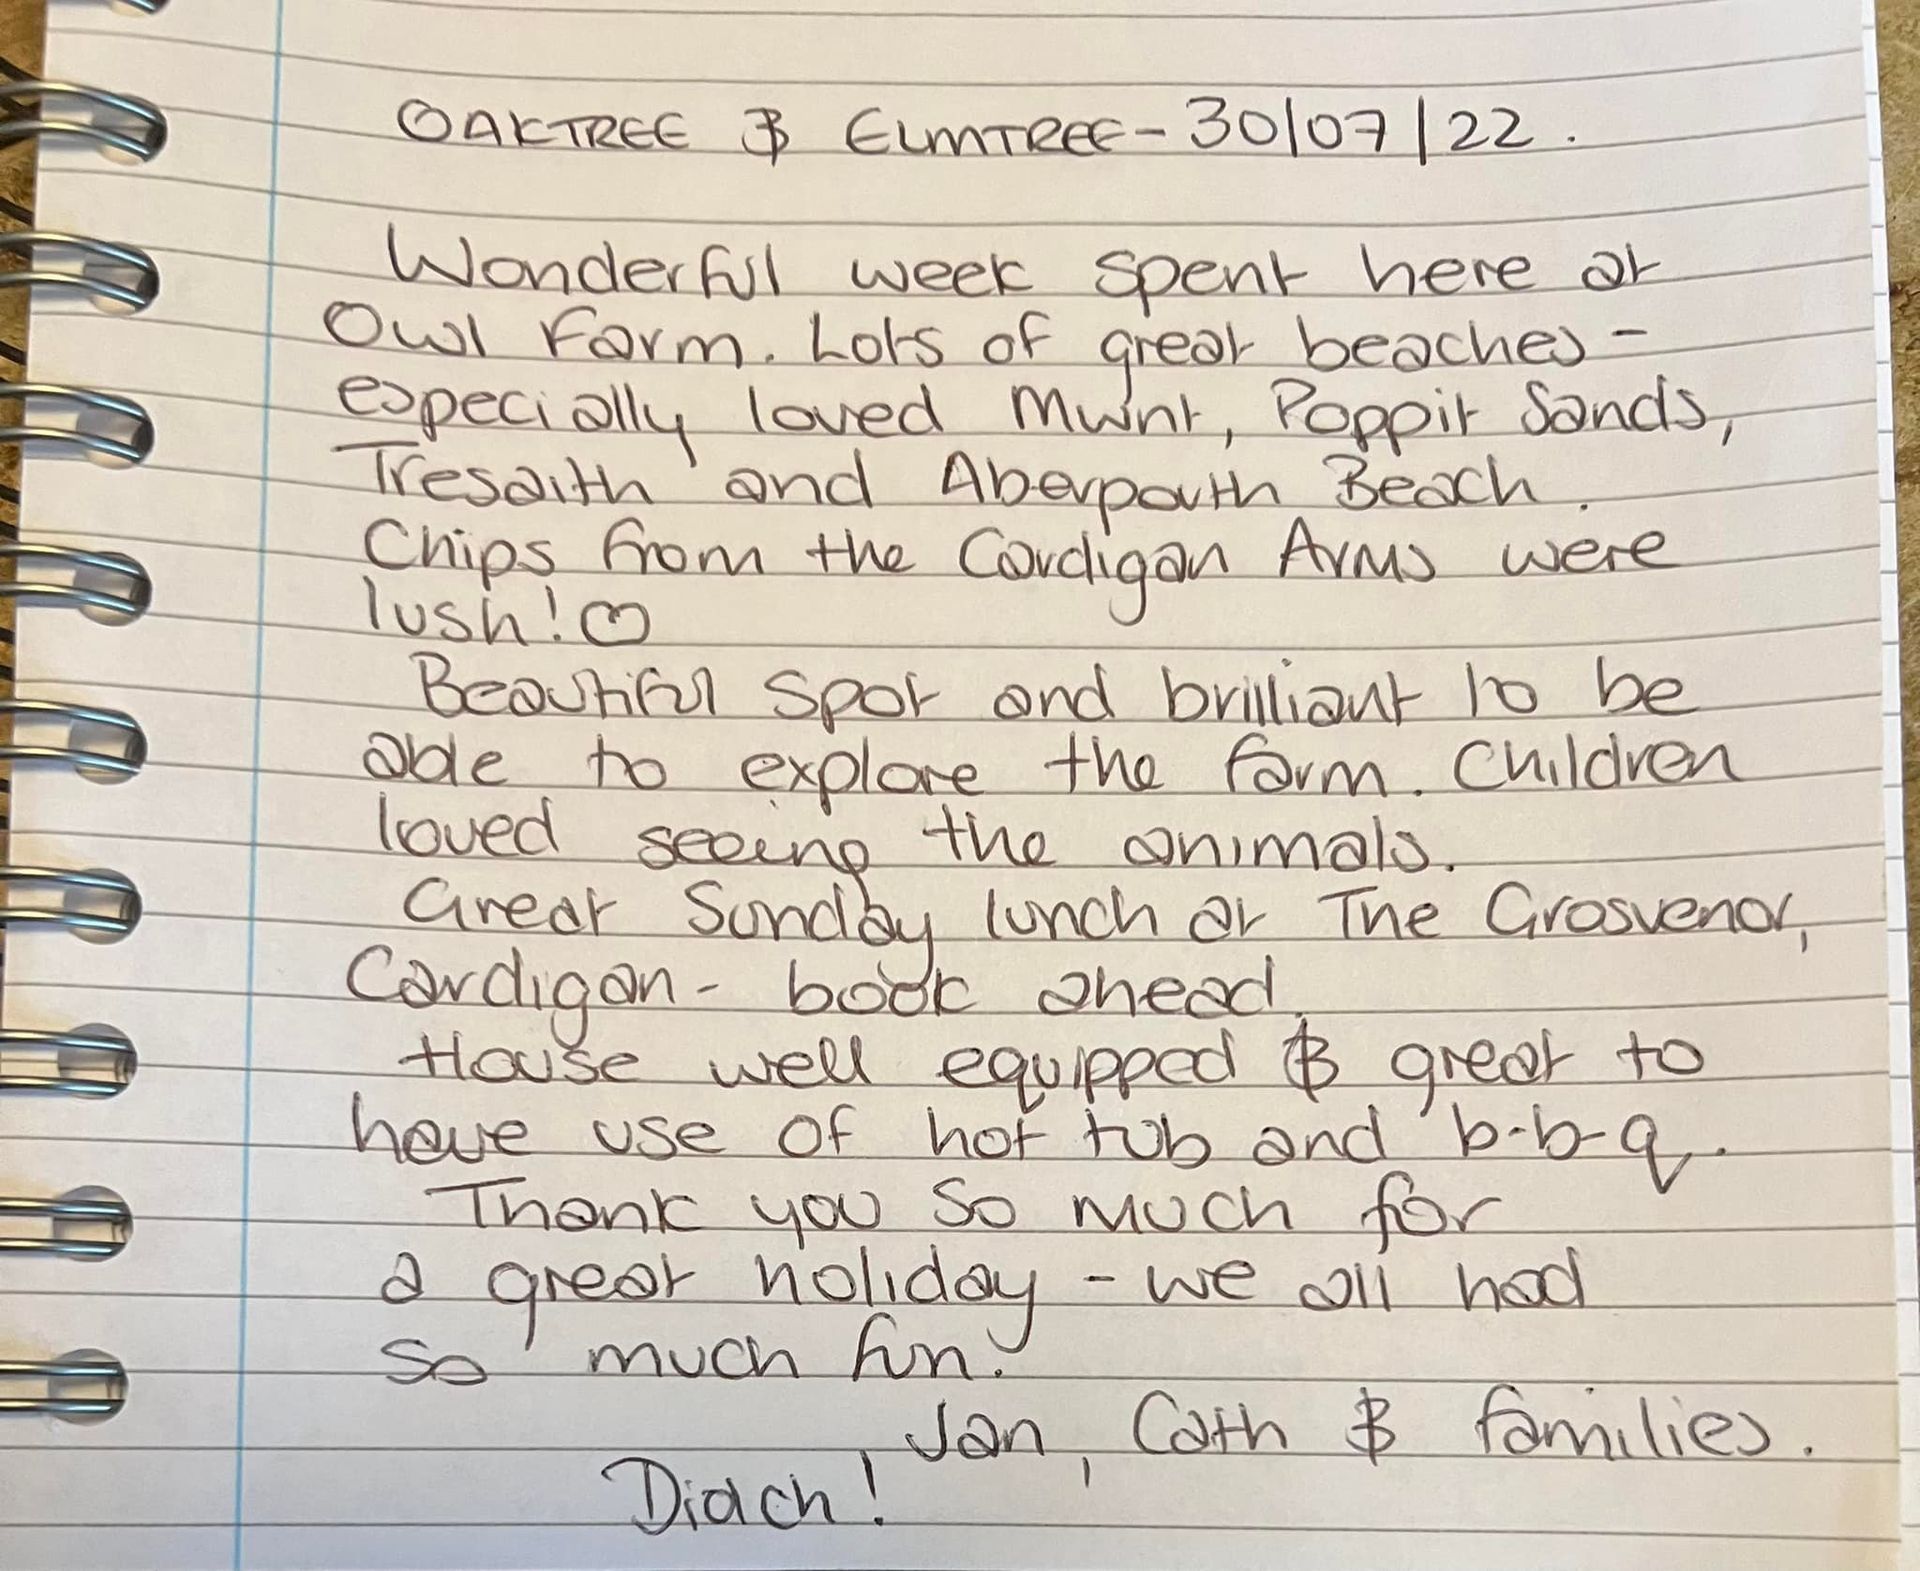 OAKTREE & ELMTREE - 30/07/22.
Wonderful week spent here at
Owl Farm. Lots of great beaches -
especially loved Mwnt, Poppit Sands,
Tresaith and Aberporth Beach.
Chips from the Cardigan Arms were
lush! ♡
Beautiful spot and brilliant to be
able to explore the farm. Children
loved seeing the animals.
Great Sunday lunch at The Grosvenor,
Cardigan - book ahead.
House well equipped & great to
have use of hot tub and b-b-q.
Thank you so much for
a great holiday - we all had
so much fun!
Jan, Cath & families.
Diolch!